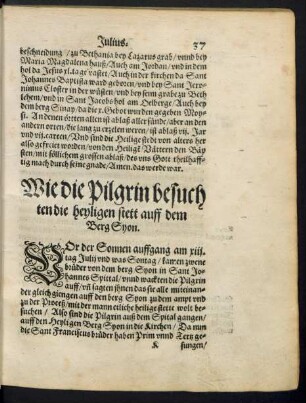 Julius. 37
beschneidung / zu Bethania bey Lazarus grab / vnnd bey
Maria Magdalena hauß / Auch am Jordan / vnd in dem
hol da Jesus xl. tag vastet / Auch in der kirchen da Sant
Johannes Baptista ward geborn / vnd bey Sant Jero-
nimus Closter in der wüsten / vnd bey seim grabe zu Beth
lehem / vnd in Sant Jacobs hol am Olberge / Auch bey
dem berg Sinay / da die x. Gebot wurden gegeben Moy-
si. An denen örtern allen ist ablaß aller sünde / aber an den
andern orten / die lang zu erzelen weren / ist ablaß vij. Jar
vnd vij. carten / Vnd sind die Heilige stedt von alters her
also gefreiet worden / von den Heilige Vättern den Bäp
sten / mit söllichem grossen ablaß / des vns Gott theilhaff-
tig mach durch seine gnade / Amen. das werde war.
Wie die Pilgrin besuch
ten die heyligen stett auff dem
Berg Syon.
VOr der Sonnen auffgang am xiij.
tag Julij vnd was Sontag / kamen zwene
brüder von dem berg Syon in Sant Jo-
hannes Spittal / vnnd wackten die Pilgrin
auff / vñ sagten jhnen das sie alle miteinan-
der gleich giengen auff den berg Syon zu dem ampt vnd
zu der Proceß / mit der man etliche heilige stette wolt be-
suchen / Also sind die Pilgrin auß dem Spital gangen /
auff den Heyligen Berg Syon in die Kirchen / Da nun
die Sant Franciscus brüder haben Prim vnnd Tertz ge-
K sungen /